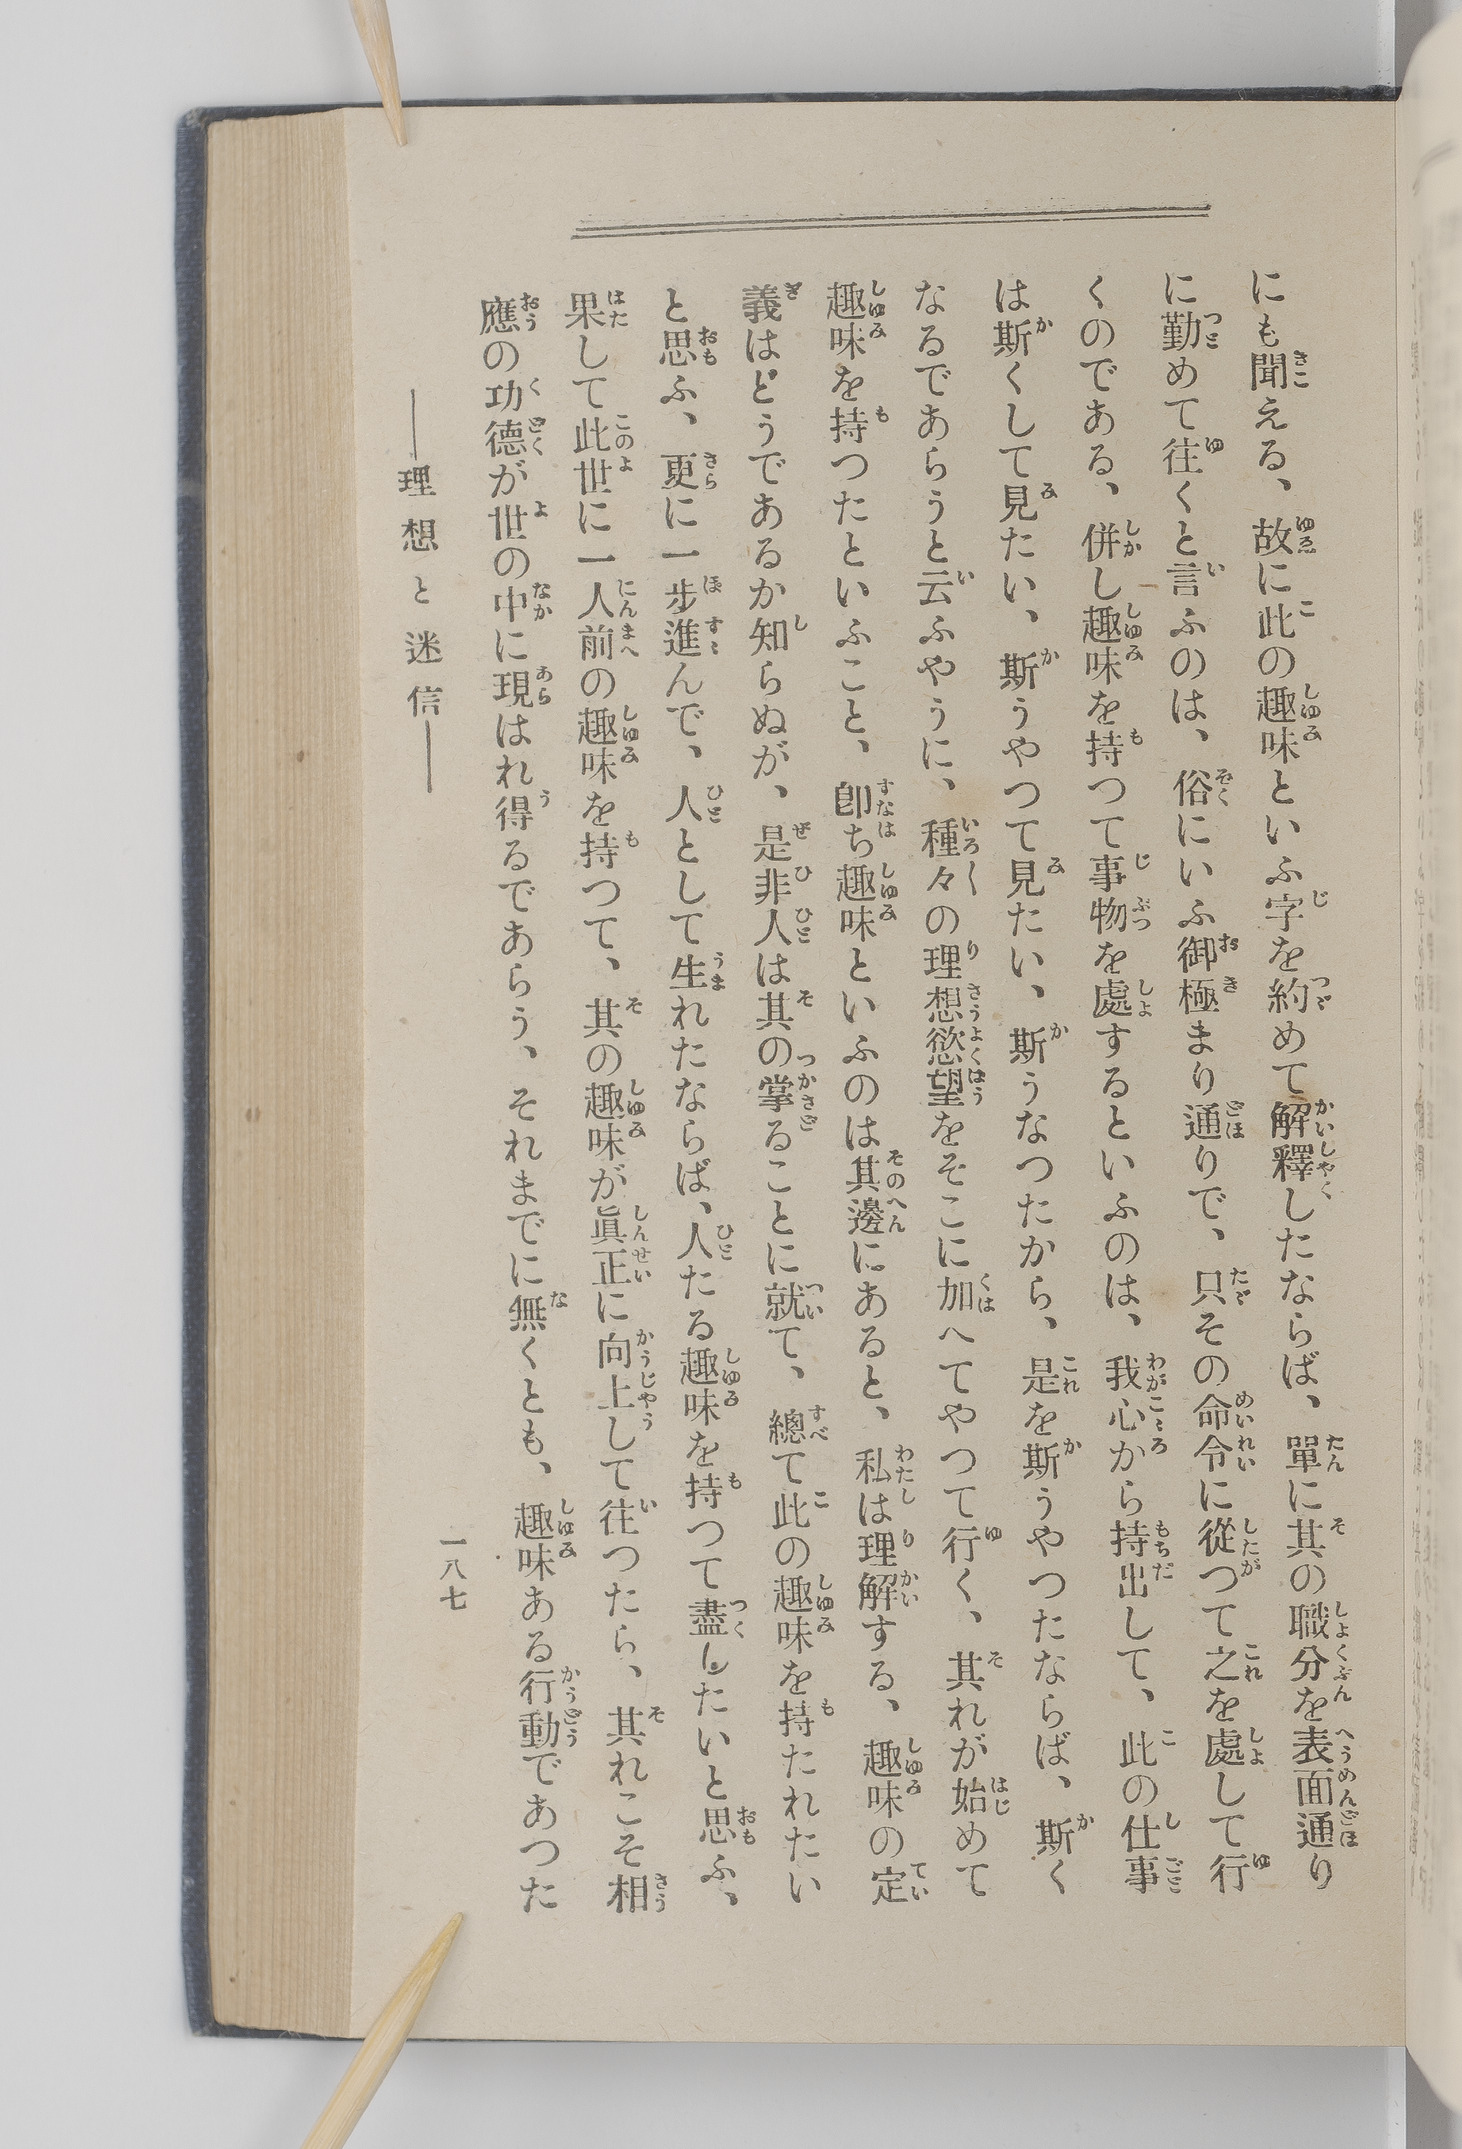 にも聞える、故に此の趣味といふ字を約めて解釋したならば、單に其の職分を表面通り
に勤めて往くと言ふのは、俗にいふ御極まり通りで、只その命令に從つて之を處して行
くのである、併し趣味を持つて事物を處するといふのは、我心から持出して、此の仕事
は斯くして見たい、斯うやつて見たい、斯うなつたから、是を斯うやつたならば、斯く
なるであらうと云ふやうに、種々の理想慾望をそこに加へてやつて行く、其れが始めて
趣味を持つたといふこと、卽ち趣味といふのは其邊にあると、私は理解する、趣味の定
義はどうであるか知らぬが、是非人は其の掌ることに就て、總て此の趣味を持たれたい
と思ふ、更に一步進んで、人として生れたならば、人たる趣味を持つて盡したいと思ふ、
果して此世に一人前の趣味を持つて、其の趣味が眞正に向上して往つたら、其れこそ相
應の功德が世の中に現はれ得るであらう、それまでに無くとも、趣味ある行動であつた
――理想と迷信――
一八七